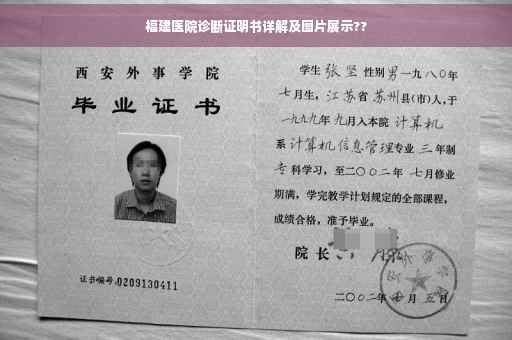 福建医院诊断证明书详解及图片展示??
西安外事学院
毕业证书
证书编号:0209130411
学生 张坚 性别 男 一九八〇年
七月生，江苏省 苏州县(市)人,于
一九九九年 九月入本院 计算机
系 计算机信息管理专业 三 年制
专 科学习，至二〇〇二年 七月修业
期满，学完教学计划规定的全部课程，
成绩合格，准予毕业。
院 长
二〇〇二年 月 五日